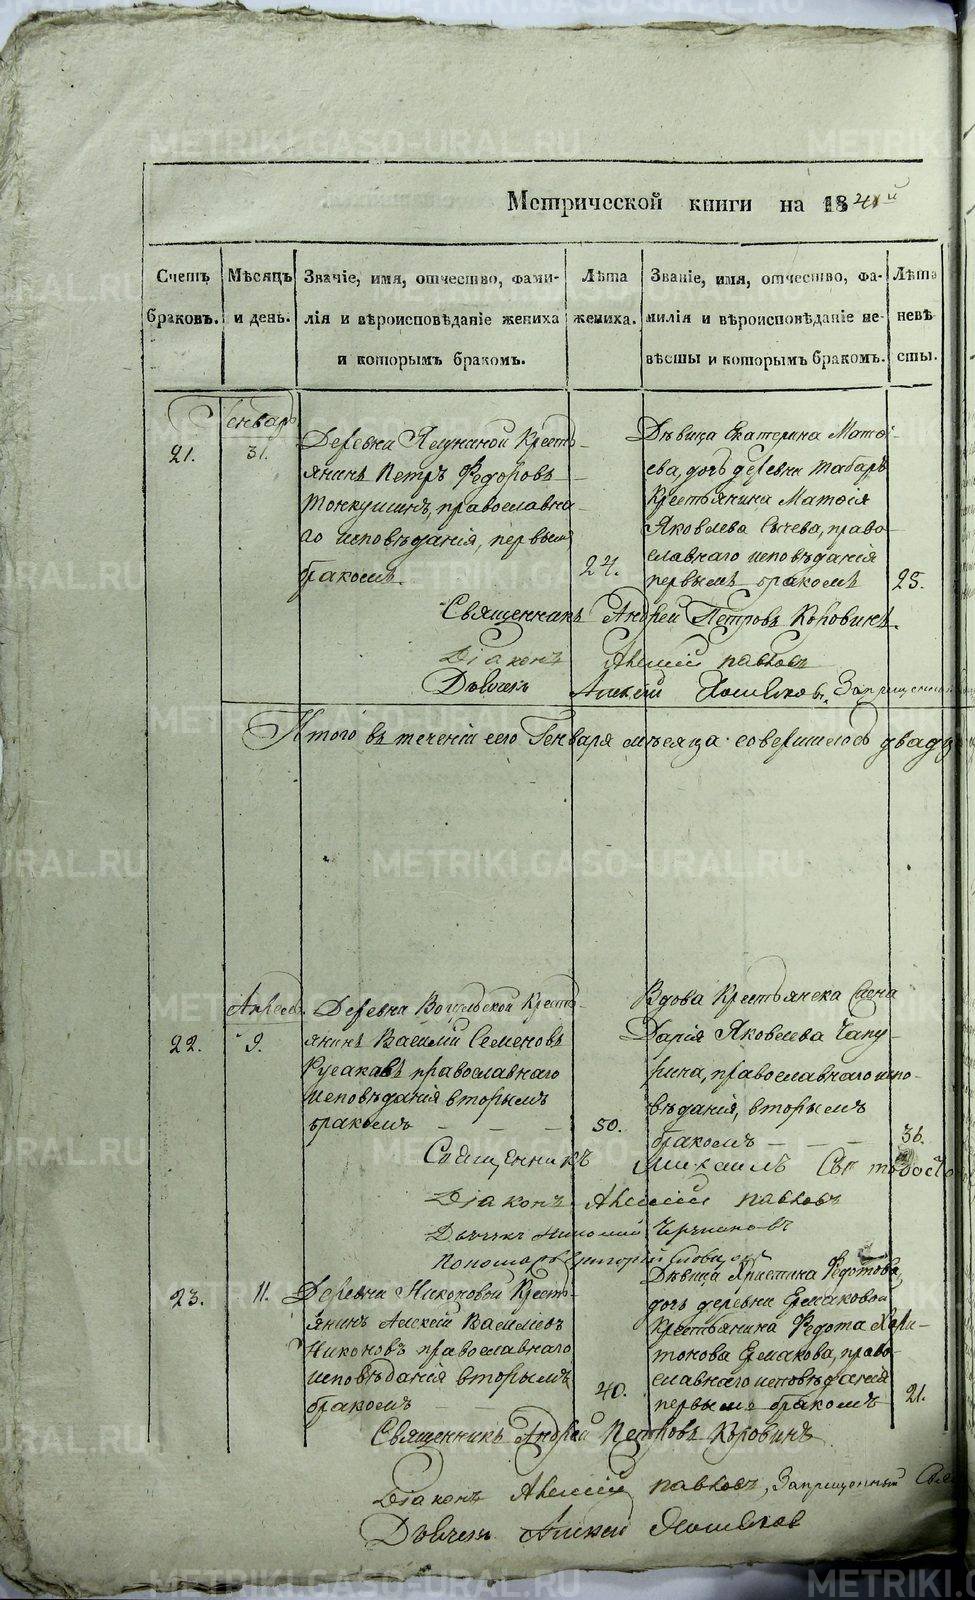 METRIKI.GASO-URAL.RU
Метрической книги на 1841й
Счетъ браковъ.
Мѣсяцъ и день.
Званіе, имя, отчество, фами-
лія и вѣроисповѣданіе жениха
и которымъ бракомъ.
Лѣта жениха.
Званіе, имя, отчество, фа-
милія и вѣроисповѣданіе не-
вѣсты и которымъ бракомъ.
Лѣта невѣ
сты.
Генварь
21.
31.
Деревни Крестъ-
янинъ Петръ Федоровъ
Тонкушинъ, православна-
го исповѣданія, первымъ
бракомъ.
24.
Дѣвица Екатерина Матѳ-
ева, дочь деревни Табаръ
Крестьянина Матѳія
Яковлева Сычева, право-
славнаго исповѣданія
первымъ бракомъ
23.
Священникъ Андрей Петровъ Коровинъ.
Діаконъ Павловъ
Дьячекъ Алексѣй
Итого въ теченіи сего Генваря мѣсяца совершилось двадц
Апрель
22.
9.
Деревни Крестъ-
янинъ Василій Семеновъ
Русаковъ православнаго
исповѣданія вторымъ
бракомъ
50.
Вдова Крестьянска
Дарія Яковлева Чапу-
рина, православнаго испо-
вѣданія, вторымъ
бракомъ
36.
Священникъ Михаилъ
Діаконъ Павловъ
Дьячекъ Николай
Пономарь Григорій
23.
11.
Деревни Никоновой Крестъ-
янинъ Алексѣй Василіевъ
Никоновъ православнаго
исповѣданія вторымъ
бракомъ
40.
Дѣвица Христина Федотова,
дочь деревни Ермаковой
Крестьянина Федота Хари-
тонова Ермакова, право-
славнаго исповѣданія
первымъ бракомъ
21.
Священникъ Андрей Петровъ Коровинъ
Діаконъ Павловъ, Запрещенный
Дьячекъ Алексѣй